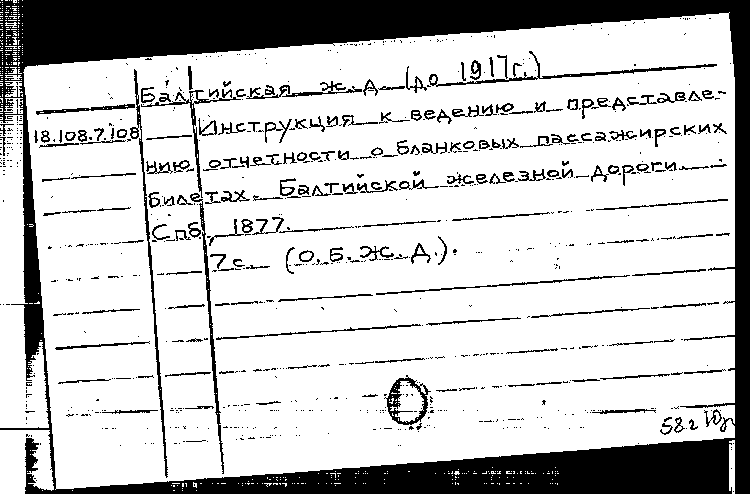 Балтийская ж. д. (до 1917г.)
18.108.7.108 Инструкция к ведению и представле-
нию отчетности о бланковых пассажирских
билетах. Балтийской железной дороги.
Спб, 1877.
7с. (О.Б.Ж.Д.).
58г